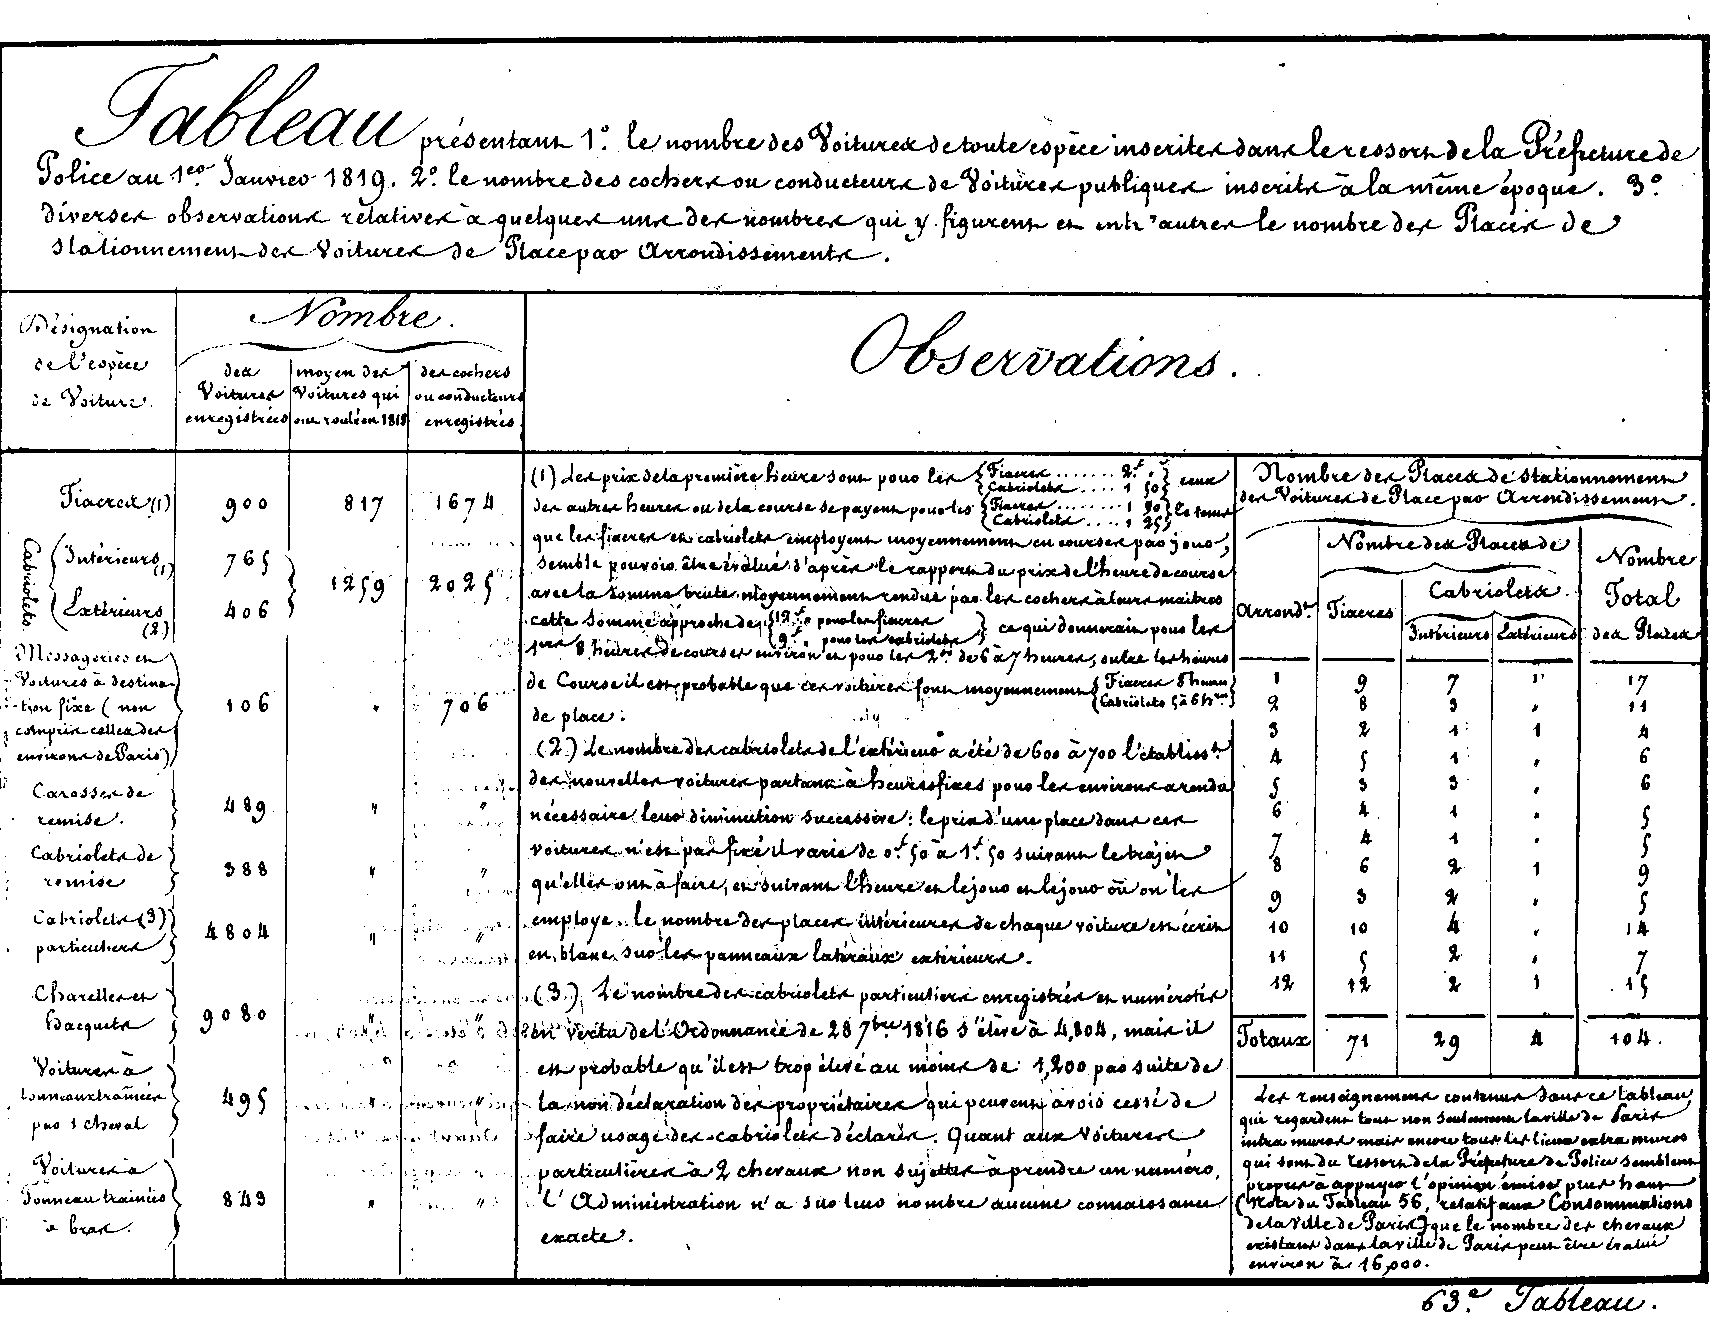 Tableau présentant 1.° le nombre des Voitures de toute espèce inscrites dans le ressort de la Préfecture de
Police au 1er Janvier 1819. 2.° le nombre des cochers ou conducteurs de Voitures publiques inscrits à la même époque. 3.°
diverses observations rélatives à quelques uns des nombres qui y figurent et entr'autres le nombre des Places de
stationnement des Voitures de Place par Arrondissements.
Désignation
de l'espèce
de Voiture.
Nombre.
des
Voitures
enregistrées
moyen des
Voitures qui
ont roulé en 1818
des cochers
ou conducteurs
enregistrés.
Observations.
Fiacres (1) 900 817 1674
Cabriolets.
Intérieurs (1) 765
1259 2025
Extérieurs (2) 406
Messageries et
Voitures à destina-
tion fixe (non
compris celles des
environs de Paris)
106 " 706
Carosses de
remise.
489 " "
Cabriolets de
remise
388 " "
Cabriolets (3)
particuliers
4804 " "
Charettes et
Hacquets
9080 " "
Voitures à
tonneaux trainées
par 1 cheval
495 " "
Voitures à
Tonneau trainées
à bras.
843 " "
(1) Les prix de la première heure sont pour les { Fiacres ...... 2f. " / Cabriolets .... 1 50 } ceux
des autres heures ou de la course se payent pour les { Fiacres ...... 1 50 / Cabriolets .... 1 25 } le tems
que les fiacres et cabriolets employent moyennement en courses par jour,
semble pouvoir être évalué d'après le rapport du prix de l'heure de course
avec la somme brute moyennement rendue par les cochers à leurs maitres
cette somme approche de { 12f. " pour les fiacres / 9f. " pour les cabriolets } ce qui donnerait pour les
1ers 8 heures de courses environ et pour les 2mes de 6 à 7 heures, outre les heures
de Course il est probable que ces voitures font moyennement { Fiacres 8 heures / Cabriolets 5 à 6 hres }
de place.
(2) Le nombre des cabriolets de l'extérieur a été de 600 à 700 l'établisst.
des nouvelles voitures partant à heures fixes pour les environs a rendu
nécessaire leur diminution successive: le prix d'une place dans ces
voitures n'est pas fixé il varie de 0f. 50 à 1f. 50 suivant le trajet
qu'elles ont à faire, et suivant l'heure et le jour et le jour où on les
employe. le nombre des places intérieures de chaque voiture est écrit
en blanc sur les panneaux latéraux extérieurs.
(3.) Le nombre des cabriolets particuliers enregistrés et numérotés
en vertu de l'Ordonnance de 28 7bre 1816 s'élève à 4,804, mais il
est probable qu'il est trop élevé au moins de 1,200 par suite de
la non déclaration des propriétaires qui peuvent avoir cessé de
faire usage des cabriolets déclarés. Quant aux Voitures
particulières à 2 chevaux non sujettes à prendre un numéro,
l'Administration n'a sur leur nombre aucune connaissance
exacte.
Nombre des Places de stationnement
des Voitures de Place par Arrondissement.
Arrondt.
Nombre des Places de
Fiacres
Cabriolets
Intérieurs Extérieurs
Nombre
Total
des Places
1 9 7 1 17
2 8 3 " 11
3 2 1 1 4
4 5 1 " 6
5 3 3 " 6
6 4 1 " 5
7 4 1 " 5
8 6 2 1 9
9 3 2 " 5
10 10 4 " 14
11 5 2 " 7
12 12 2 1 15
Totaux 71 29 4 104.
Les renseignemens contenus dans ce tableau,
qui regardent tous non seulement la ville de Paris
intra muros mais encore tous les lieux extra muros
qui sont du ressort de la Préfecture de Police semblent
propres à appuyer l'opinion émise plus haut
(Note du Tableau 56, relatif aux Consommations
de la Ville de Paris) que le nombre des chevaux
existant dans la ville de Paris peut être évalué
environ à 16,000.
63.e Tableau.